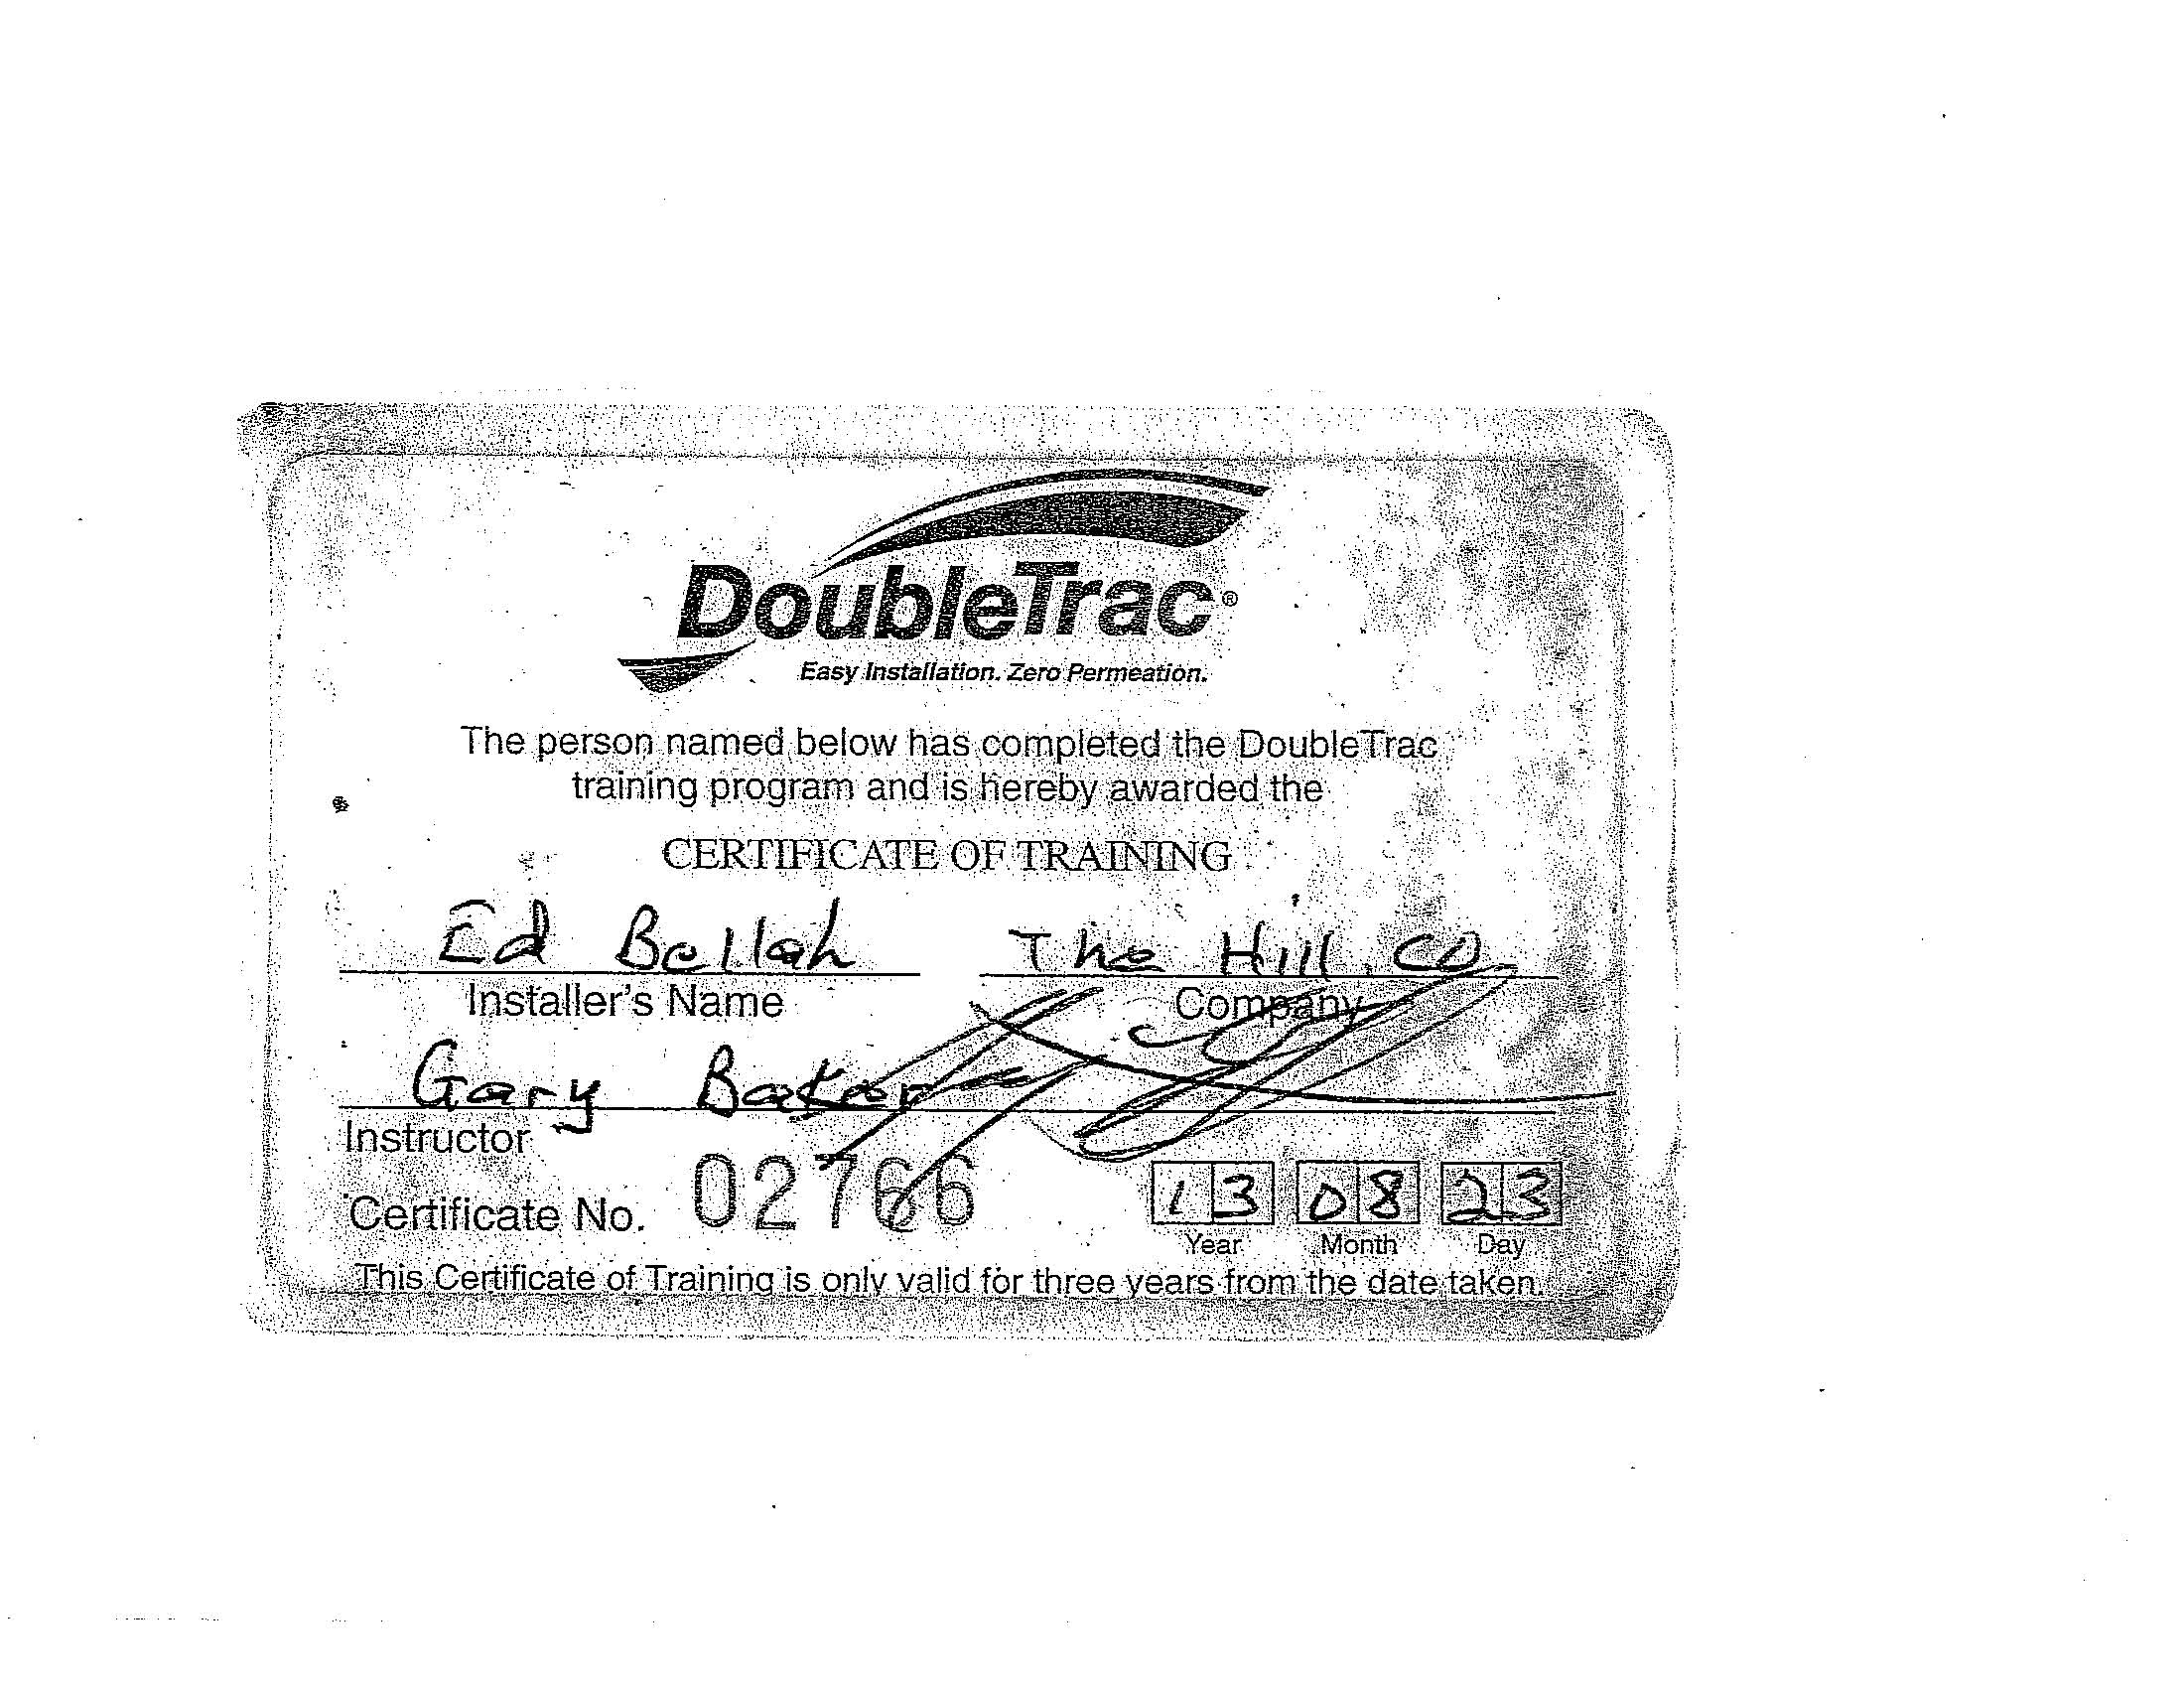 DoubleTrac®
Easy Installation. Zero Permeation.
The person named below has completed the DoubleTrac
training program and is hereby awarded the
CERTIFICATE OF TRAINING
Ed Bellah The Hill CO
Installer's Name Company
Gary Baker
Instructor
Certificate No. 02766 13 08 23
Year Month Day
This Certificate of Training is only valid for three years from the date taken.